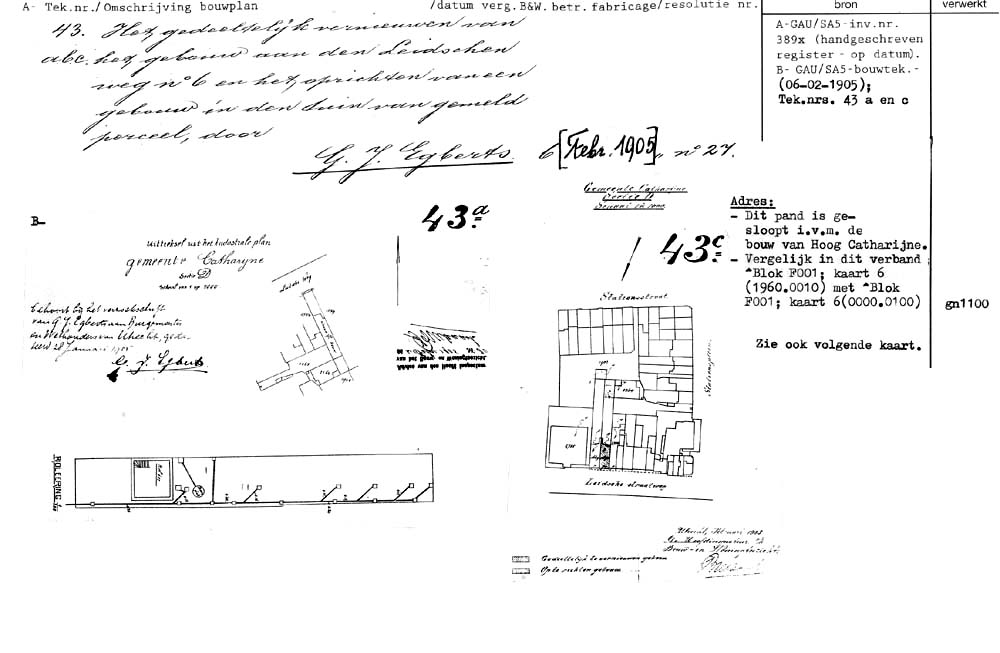 A- Tek.nr./Omschrijving bouwplan /datum verg.B&W.betr.fabricage/resolutie nr.
bron
verwerkt
43. Het gedeeltelijk vernieuwen van
abc. het gebouw aan den Leidschen
weg nº 6 en het oprichten van een
gebouw in den tuin van gemeld
perceel, door
G. J. Egberts. 6 [Febr. 1905], nº 27.
A-GAU/SA5-inv.nr.
389x (handgeschreven
register - op datum).
B- GAU/SA5-bouwtek.-
(06-02-1905);
Tek.nrs. 43 a en c
B-
43.a
Uittreksel uit het kadastrale plan
gemeente Catharyne
Sectie D
Behoort bij het verzoekschrift
van G J. Egberts aan Burgemeester
en Wethouders van Utrecht, gede
teerd 28 Januari 1905
G. J. Egberts
Gemeente Catharijne
43.c
Stationsstraat
Stationsplein
Leidsche straatweg
Adres:
- Dit pand is ge-
sloopt i.v.m. de
bouw van Hoog Catharijne.
- Vergelijk in dit verband
"Blok F001; kaart 6
(1960.0010) met "Blok
F001; kaart 6(0000.0100)
gn1100
Zie ook volgende kaart.
RIOLEERING.
Utrecht, Februari 1905
Gedeeltelijk te vernieuwen gebouw
Op te richten gebouw